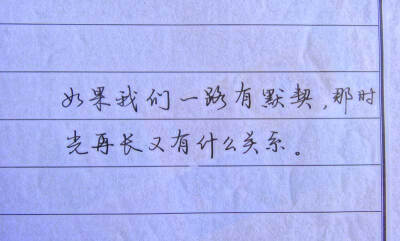 如果我们一路有默契,那时
光再长又有什么关系。